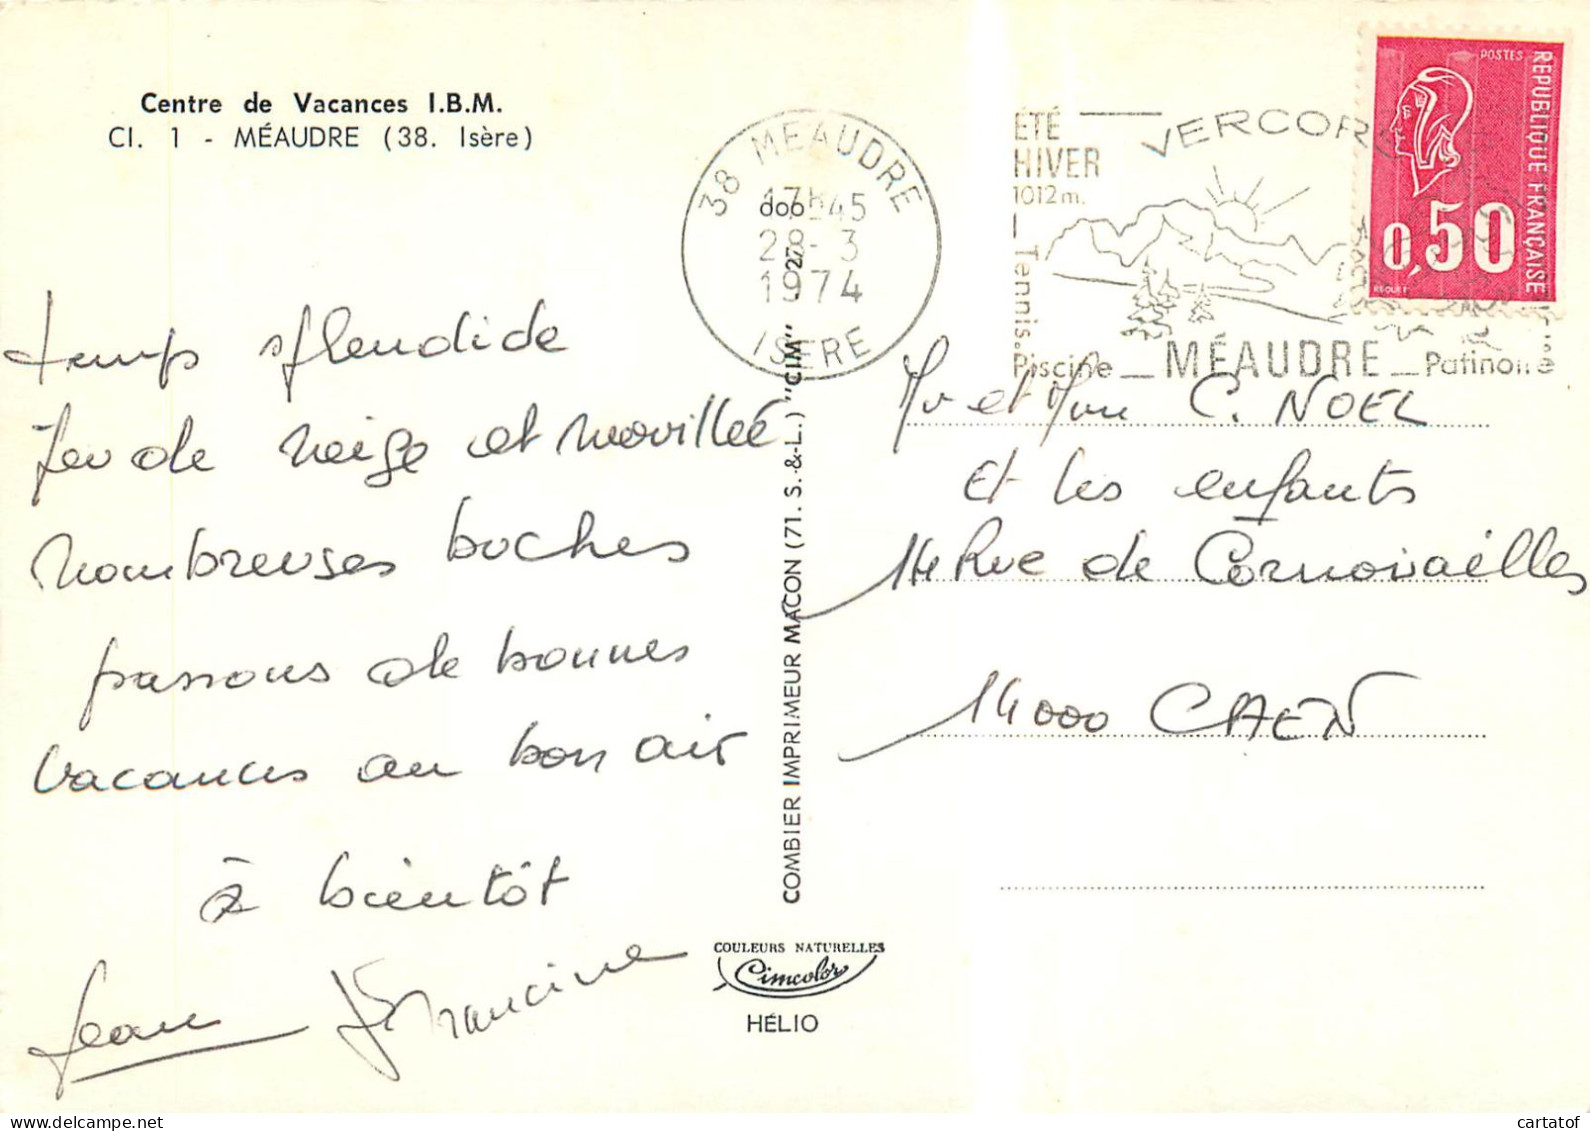 Centre de Vacances I.B.M.
Cl. 1 - MÉAUDRE (38. Isère)
temps splendide
peu de neige et mouillée
nombreuses buches
passons de bonnes
vacances au bon air
à bientôt
Jean Francine
38 MEAUDRE
17h45
28-3
1974
ISERE
ÉTÉ
HIVER
1012 m.
VERCORS
Tennis.
Piscine _ MÉAUDRE _ Patinoire
POSTES
REPUBLIQUE FRANÇAISE
0,50
BEQUET
COMBIER IMPRIMEUR MACON (71. S.-&-L.) "CIM"
Mr et Mme C. NOEL
et les enfants
14 Rue de Cornouailles
14000 CAEN
COULEURS NATURELLES
Cimcolor
HÉLIO
cartatof